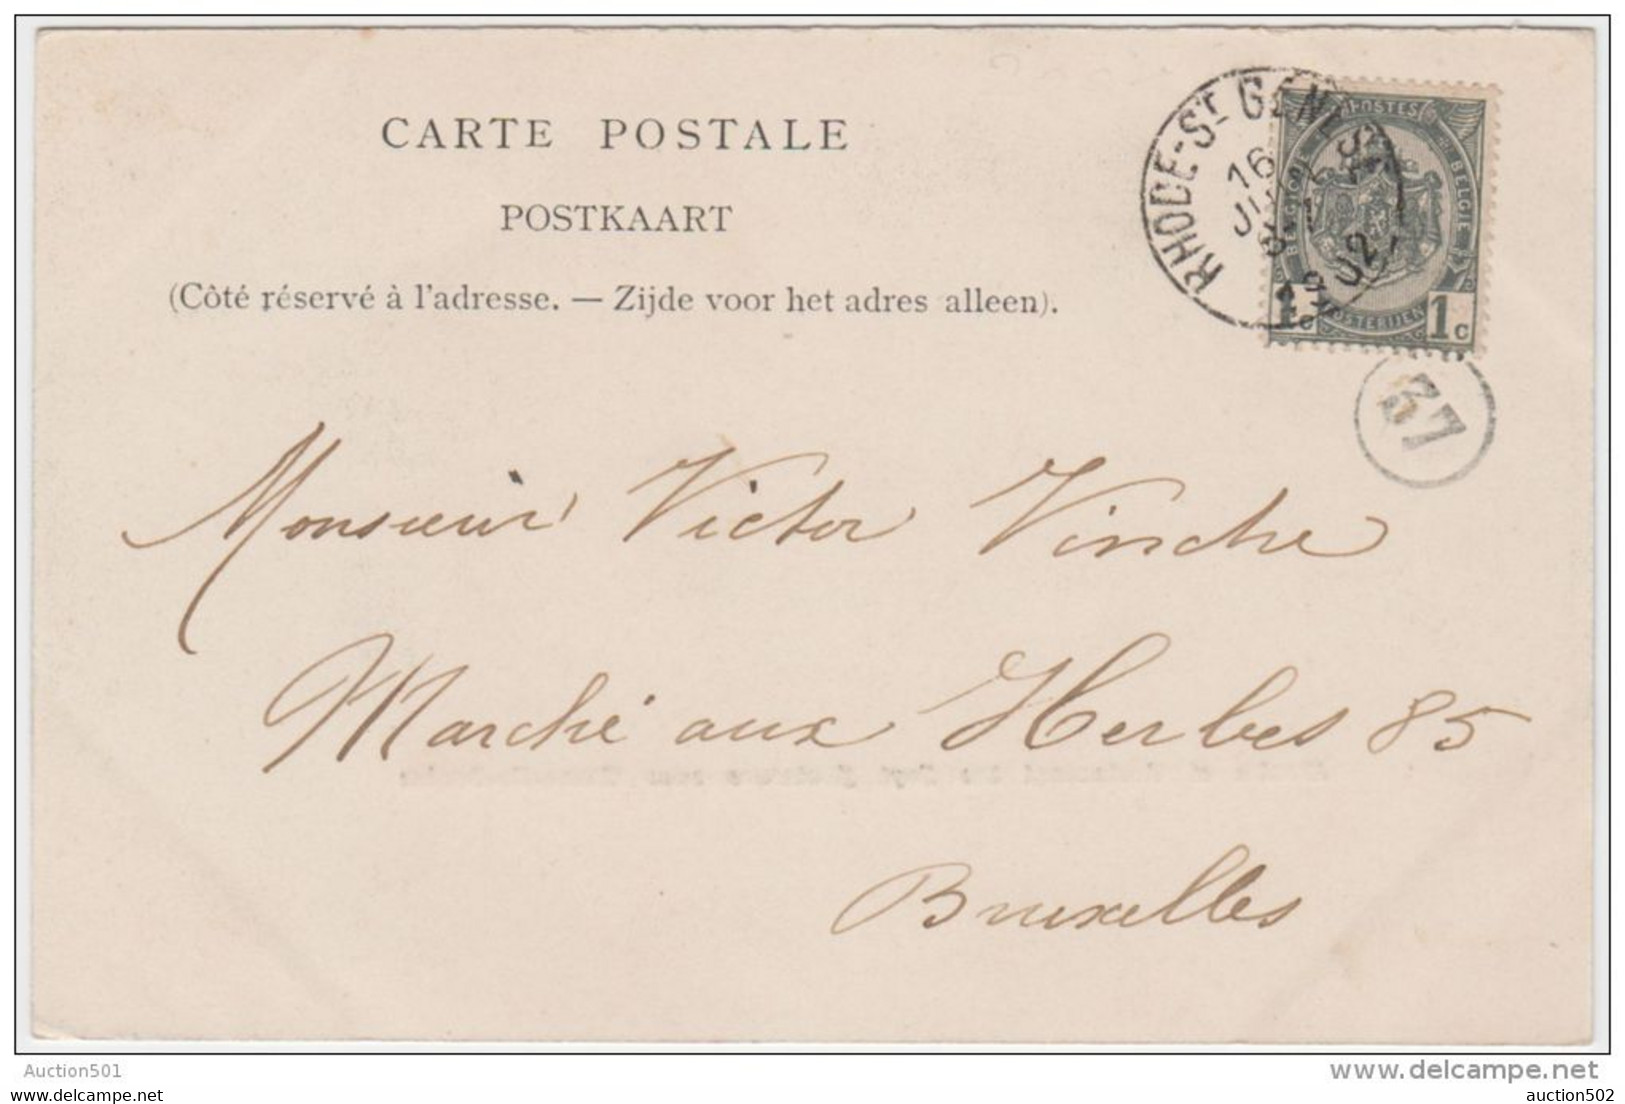 CARTE POSTALE
POSTKAART
(Côté réservé à l'adresse. — Zijde voor het adres alleen).
RHODE-St GENESE
16
1902
POSTES
BELGIQUE
BELGIE
POSTERIJEN
1c 1c
37
Monsieur Victor Vinche
Marché aux Herbes 85
Bruxelles
Auction501
www.delcampe.net
auction502 auction502